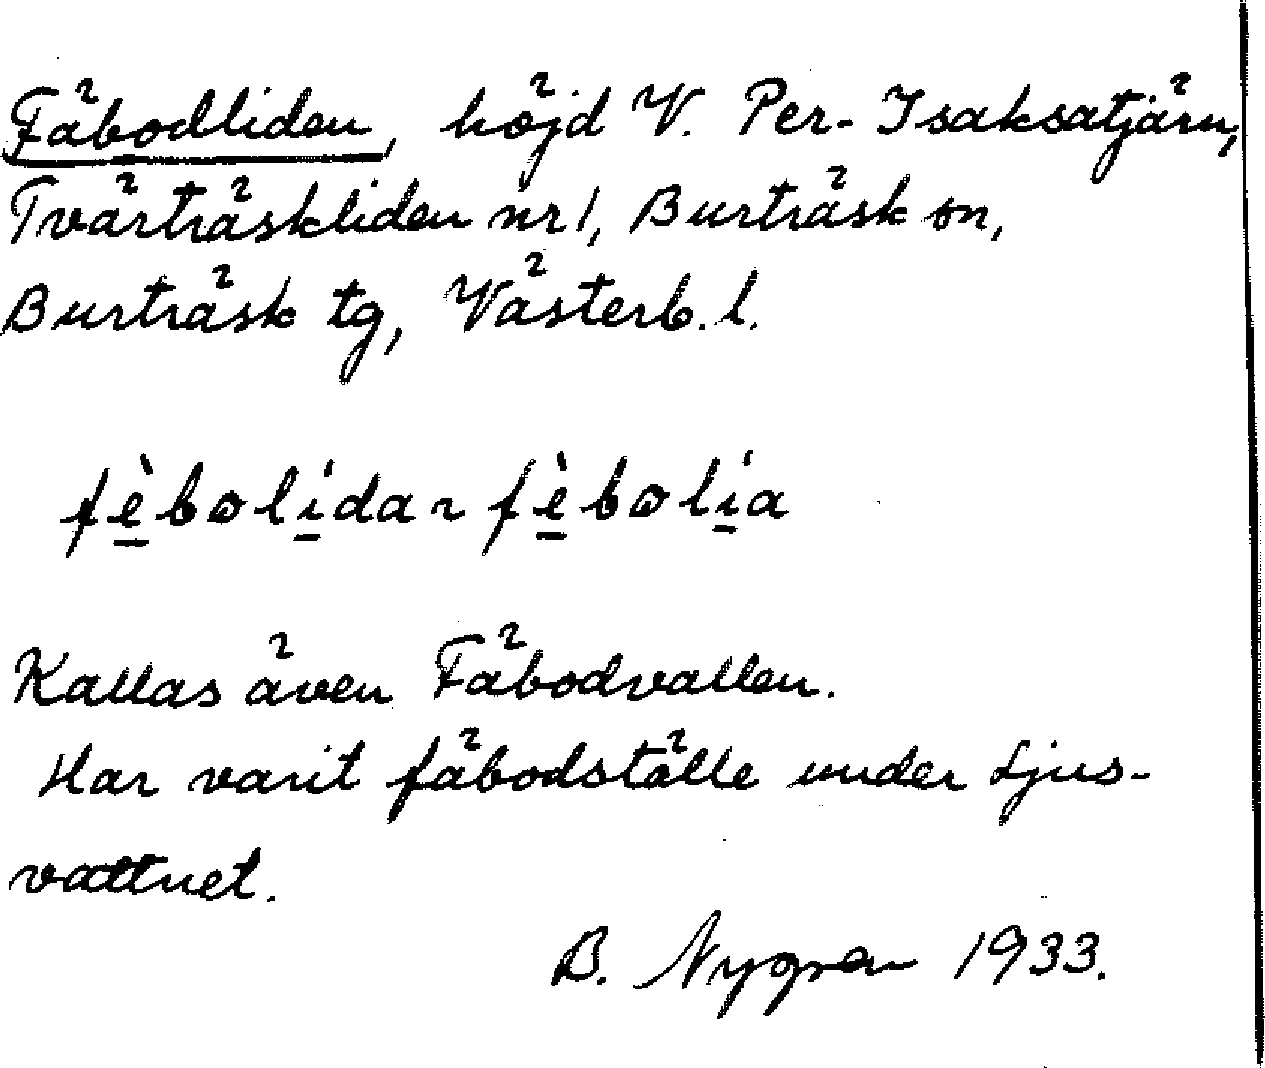 Fäbodliden, höjd V. Per-Isaksatjärn,
Tvärträskliden nr 1, Burträsk sn,
Burträsk tg, Västerb. l.
fè̱bolí̱da ~ fè̱bolí̱a
Kallas även Fäbodvallen.
Har varit fäbodställe under Ljus-
vattnet.
B. Nygren 1933.